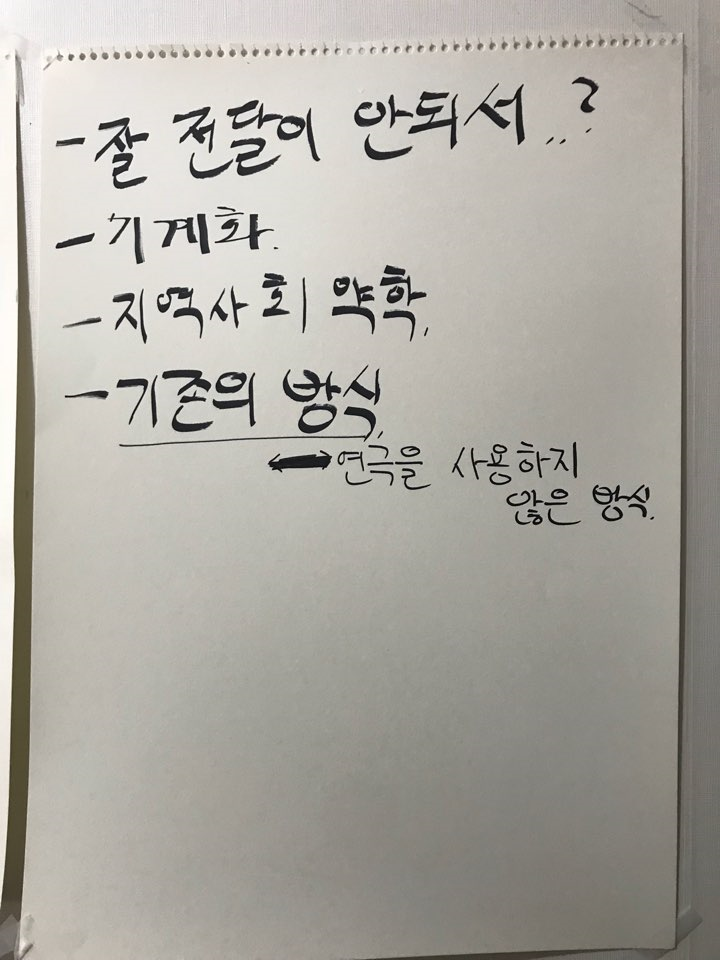 - 잘 전달이 안되서..?
- 기계화.
- 지역사회 약학,
- 기존의 방식,
↔ 연극을 사용하지
않은 방식.